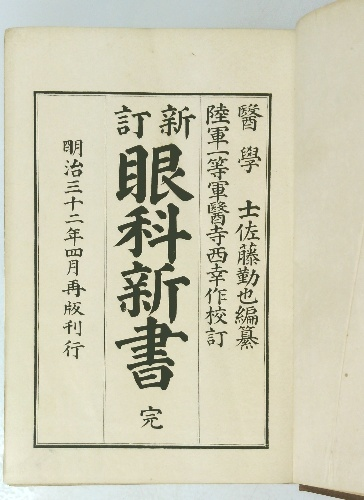 醫學士佐藤勤也編纂
陸軍一等軍醫寺西幸作校訂
新訂
眼科新書
完
明治三十二年四月再版刊行